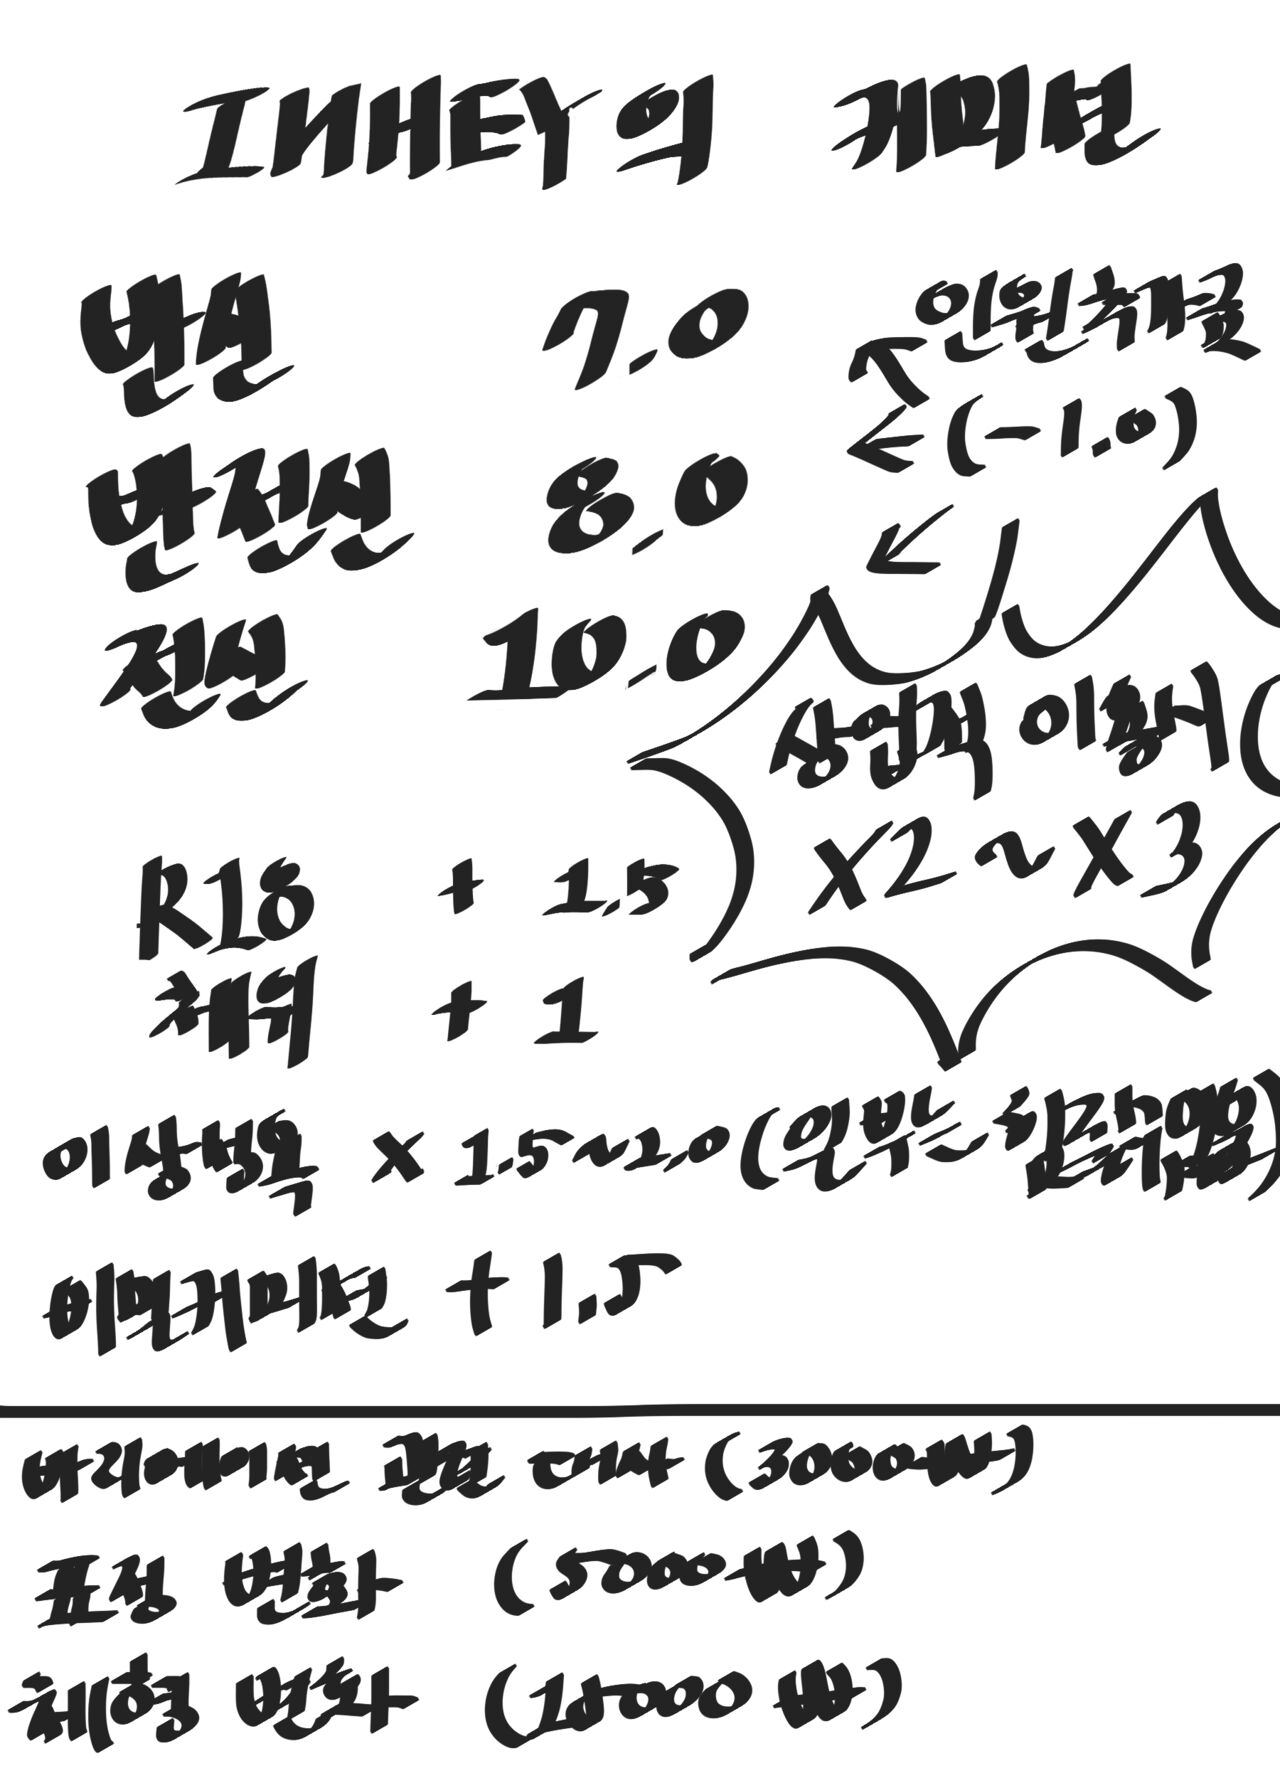 INHEY의 커미션
반신 7.0
인원추가금
(-1.0)
반전신 8.0
전신 10.0
상업적 이황시
x2~x3
R18 + 1.5
체위 + 1
이상성욕 x 1.5~2.0 (일부는
비밀커미션 +1.5
바리에이션 관련 대사 (3000₩)
표정 변화 (5000₩)
체형 변화 (15000₩)